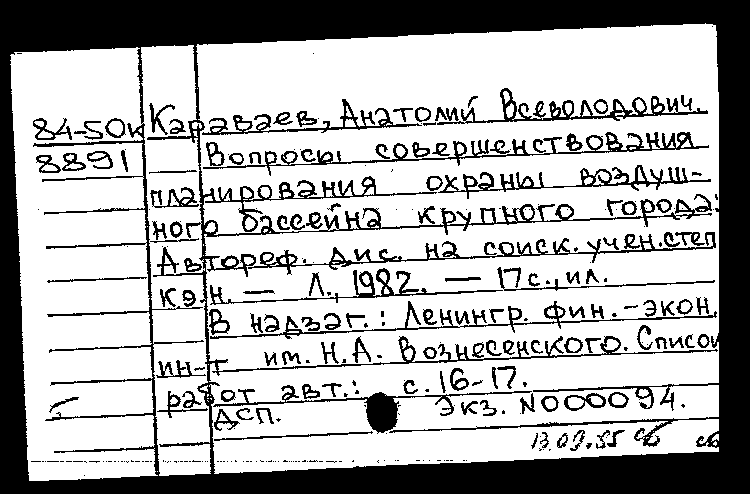 84-50к Караваев, Анатолий Всеволодович.
8891 Вопросы совершенствования
планирования охраны воздуш-
ного бассейна крупного города:
Автореф. дис. на соиск. учен. степ
к.э.н. — Л., 1982. — 17 с., ил.
В надзаг.: Ленингр. фин.-экон.
ин-т им. Н.А. Вознесенского. Список
работ авт.: с. 16-17.
ДСП. Экз. N000094.